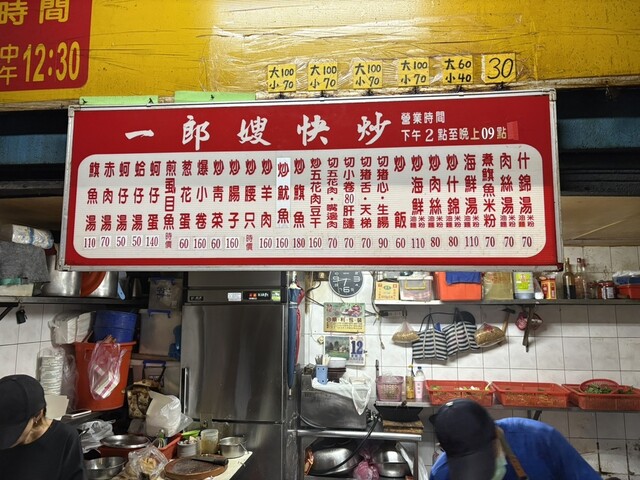 時間
中午12:30
大100
小70
大100
小70
大100
小90
大100
小70
大60
小40
30
一郎嫂快炒
營業時間
下午2點至晚上09點
什錦湯 米粉 油麵 70
肉絲湯 米粉 油麵 70
煮鱟魚米粉 70
海鮮湯 米粉 油麵 110
炒什錦 米粉 油麵 80
炒肉絲 米粉 油麵 80
炒海鮮 米粉 油麵 110
炒飯 60
切豬心·生腸 90
切豬舌·天梯 70
切小卷80肝膁 70
切五花肉·嘴邊肉 70
炒五花肉豆干 160
炒旗魚 180
炒魷魚 160
炒羊肉 160
炒腰只 時價
炒腸子 160
炒青菜 60
爆小卷 160
蔥花蛋 60
煎虱目魚 時價
蚵仔蛋 140
蛤仔湯 50
蚵仔湯 50
赤肉湯 70
旗魚湯 110
12